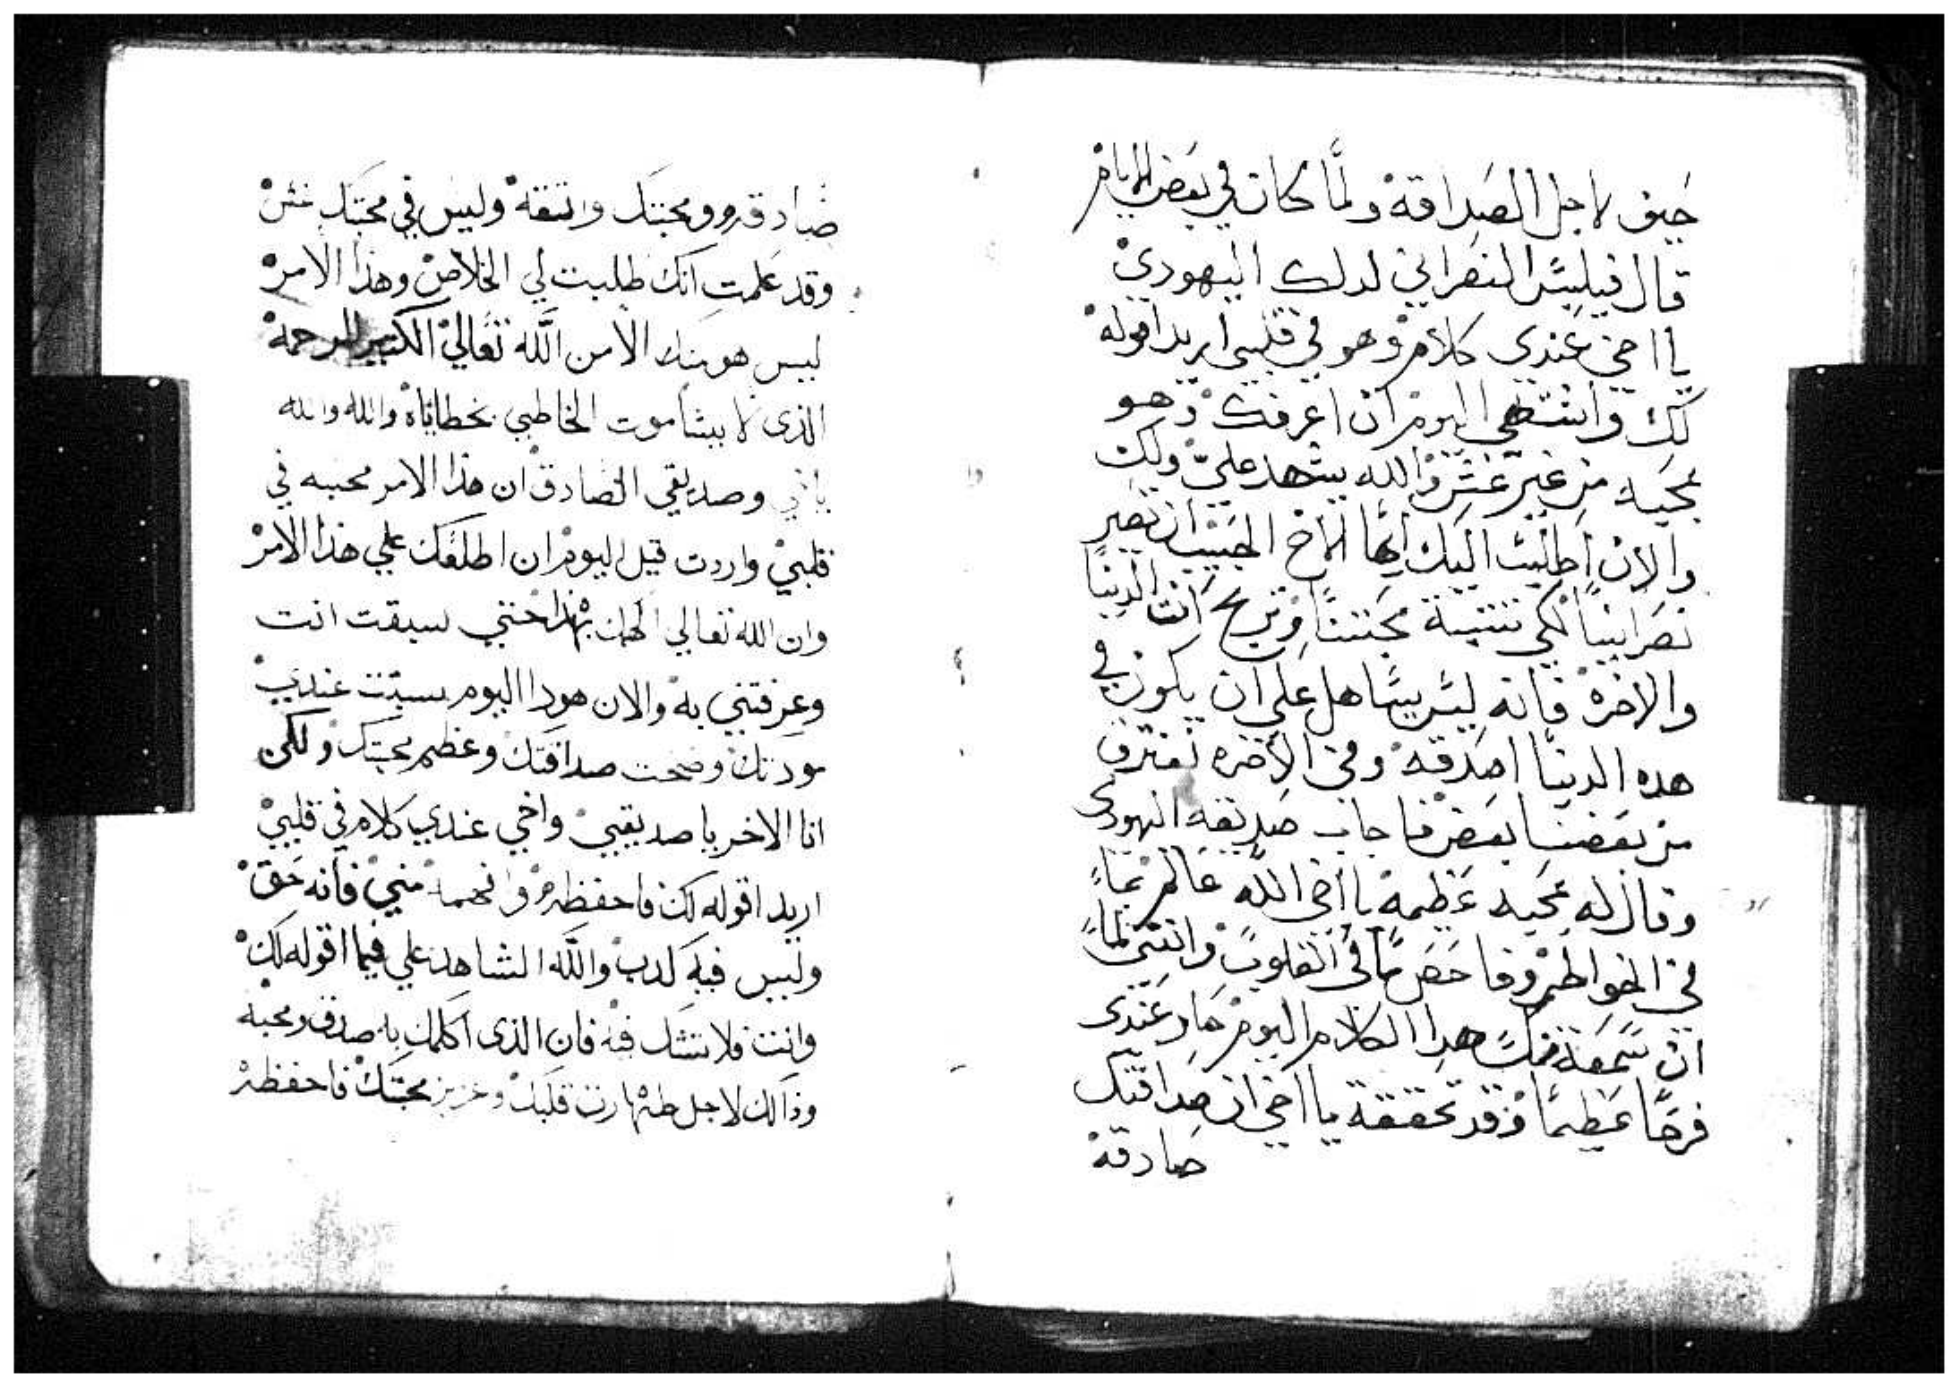 حيف لاجل الصداقة ولما كان في بعض الايام
قال فيليبس النصراني لدلك اليهودي
يا اخي عندي كلام وهو في قلبي اريد اقوله
لك واشتهي اليوم ان اعرفك وهو
بمحبه من غير غش والله يشهد علي ولك
والان اطلبت اليك ايها الاخ الحبيب ان تصير
نصرانيا لكي تثبت محبتنا وتربح انت الدنيا
والاخرة فانه ليس يتاهل علي ان يكون في
هده الدنيا اصدقه وفي الاخره نفترق
من بعضنا بعض فاجاب صديقه اليهودي
وقال له بمحبه عظيمة يا اخي الله عالم بما
في الخواطر وفاحص ما في القلوب وانني لما
ان سمعة منك هدا الكلام اليوم صار عندي
فرحا عظيما وقد تحققة يا اخي ان صداقتك
صادقة
صادقه ومحبتك واتقة وليس في محبتك غش
وقد علمت انك طلبت لي الخلاص وهذا الامر
ليس هو منك الا من الله تعالي الكثير الرحمة
الذي لا يشا موت الخاطي بخطاياه والله والله
ياخي وصديقي الصادق ان هذا الامر محبه في
قلبي واردت قبل اليوم ان اطلعك علي هذا الامر
وان الله تعالي الهمك بهذا حتي سبقت انت
وعرفتني به والان هودا اليوم بستت عندي
مودتك وضحت صداقتك وعظم محبتك ولكن
انا الاخر يا صديقي واخي عندي كلام في قلبي
اريد اقوله لك فاحفظه وافهمه مني فانه حق
وليس فيه كدب والله الشاهد علي فيما اقوله لك
وانت فلا تشك فيه فان الذي اكلمك به صدق ومحبة
وذالك لاجل طهارت قلبك وعزيز محبتك فاحفظه